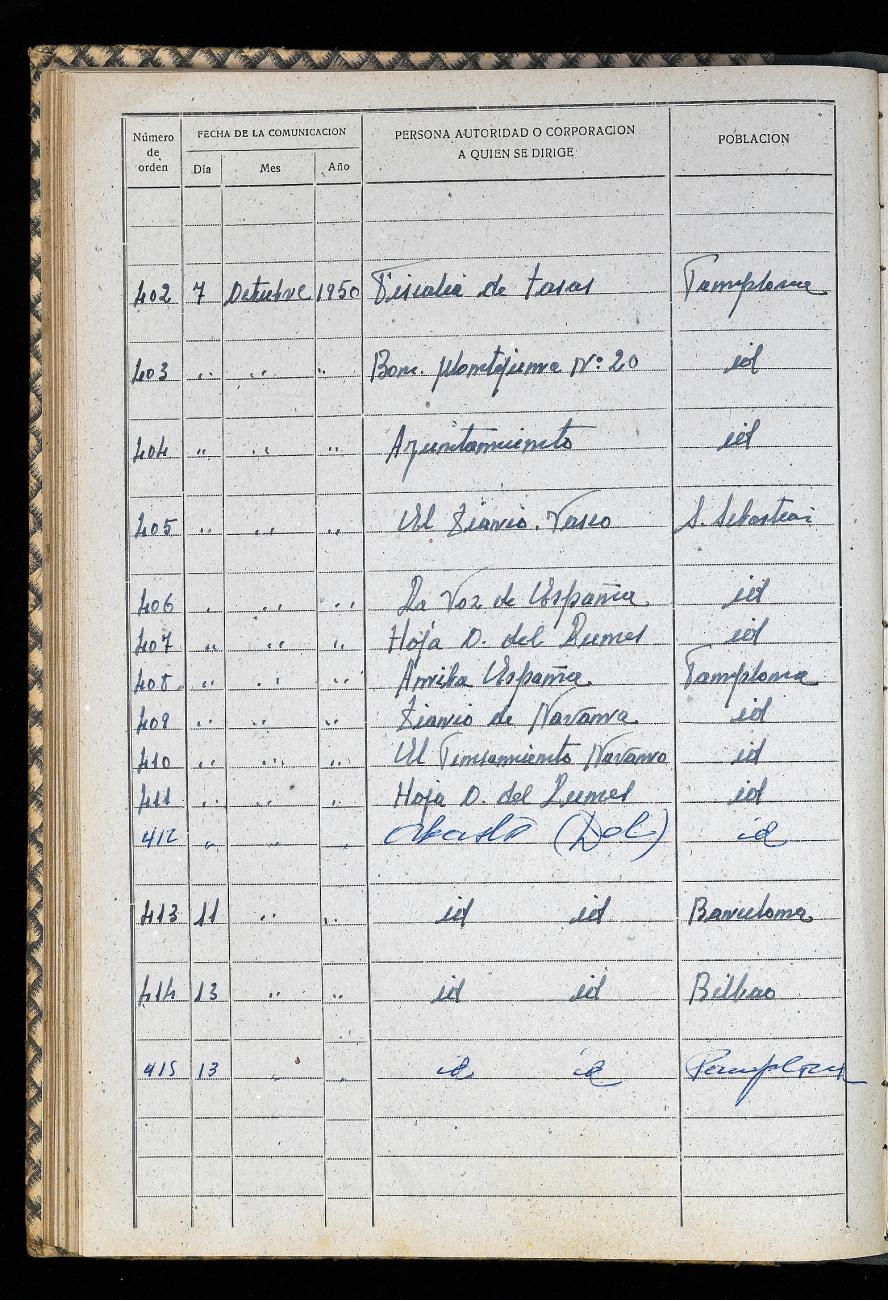 Número de orden FECHA DE LA COMUNICACION PERSONA AUTORIDAD O CORPORACION A QUIEN SE DIRIGE POBLACION
Día Mes Año
402 7 Octubre 1950 Fiscalia de tasas Pamplona
403 " " " Bon. Montejurra Nº 20 id
404 " " " Ayuntamiento id
405 " " " El Diario Vasco S. Sebastian
406 " " " La Voz de España id
407 " " " Hoja O. del Lunes id
408 " " " Arriba España Pamplona
409 " " " Diario de Navarra id
410 " " " El Pensamiento Navarro id
411 " " " Hoja O. del Lunes id
412 " " " Abasto (Del) id
413 11 " " id id Barcelona
414 13 " " id id Bilbao
415 13 " " id id Pamplona